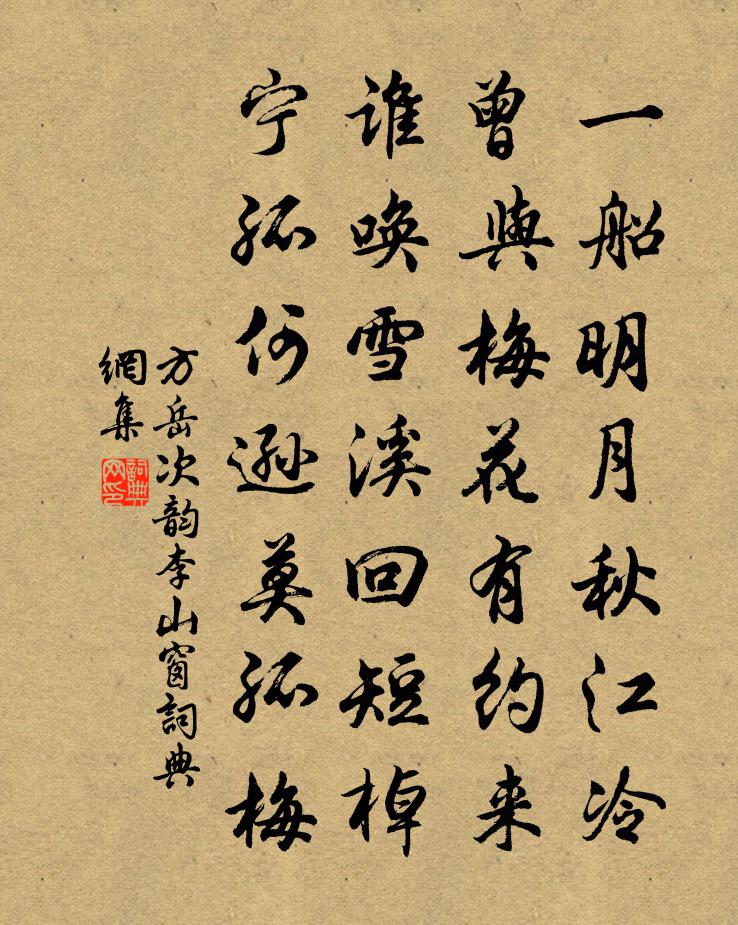 一船明月秋江冷
曾與梅花有约来
谁唤雪溪回短棹
宁孤何逊莫孤梅
方岳次韵李山窗詞典
網集
詞典
网印